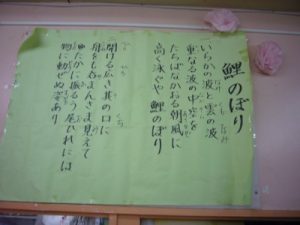 鯉のぼり
いらかの波と雲の波
重なる波の中空を
たちばなかおる朝風に
高く泳ぐや鯉のぼり
開ける広き其の口に
舟をも呑まんさま見えて
ゆたかに振るう尾ひれには
物に動ぜぬ姿あり